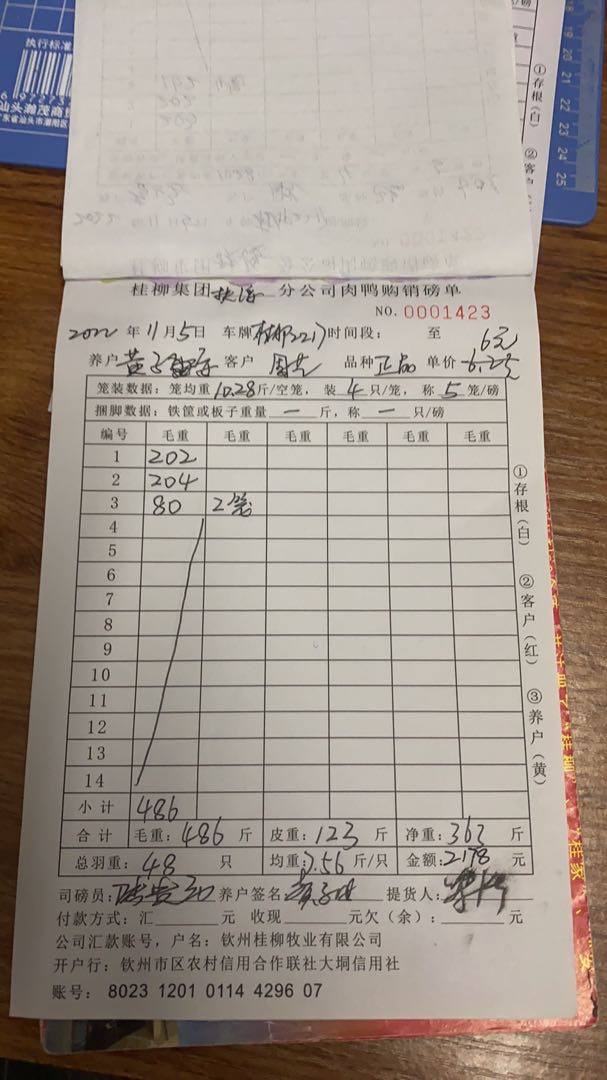 执行标准
6 97373
汕头瀚茂商
广东省汕头市潮阳区
18 19 20 21 22 23 24 25
/磅
①存根(白)
②客户
桂柳集团 分公司肉鸭购销磅单
NO. 0001423
2022年11月5日 车牌 时间段: 至 6元
养户 黄 客户 周 品种 正品 单价 6.2元
笼装数据: 笼均重10.28斤/空笼, 装4只/笼, 称5笼/磅
捆脚数据: 铁筐或板子重量 — 斤, 称 — 只/磅
编号 毛重 毛重 毛重 毛重 毛重 毛重
1 202
2 204
3 80 2笼
4
5
6
7
8
9
10
11
12
13
14
小计 486
合计 毛重: 486 斤 皮重: 123 斤 净重: 363 斤
总羽重: 48 只 均重: 7.56斤/只 金额: 2178 元
司磅员: 养户签名: 提货人:
付款方式: 汇 元 收现 元欠(余): 元
公司汇款账号, 户名: 钦州桂柳牧业有限公司
开户行: 钦州市区农村信用合作联社大垌信用社
账号: 8023 1201 0114 4296 07
①存根(白)
②客户(红)
③养户(黄)